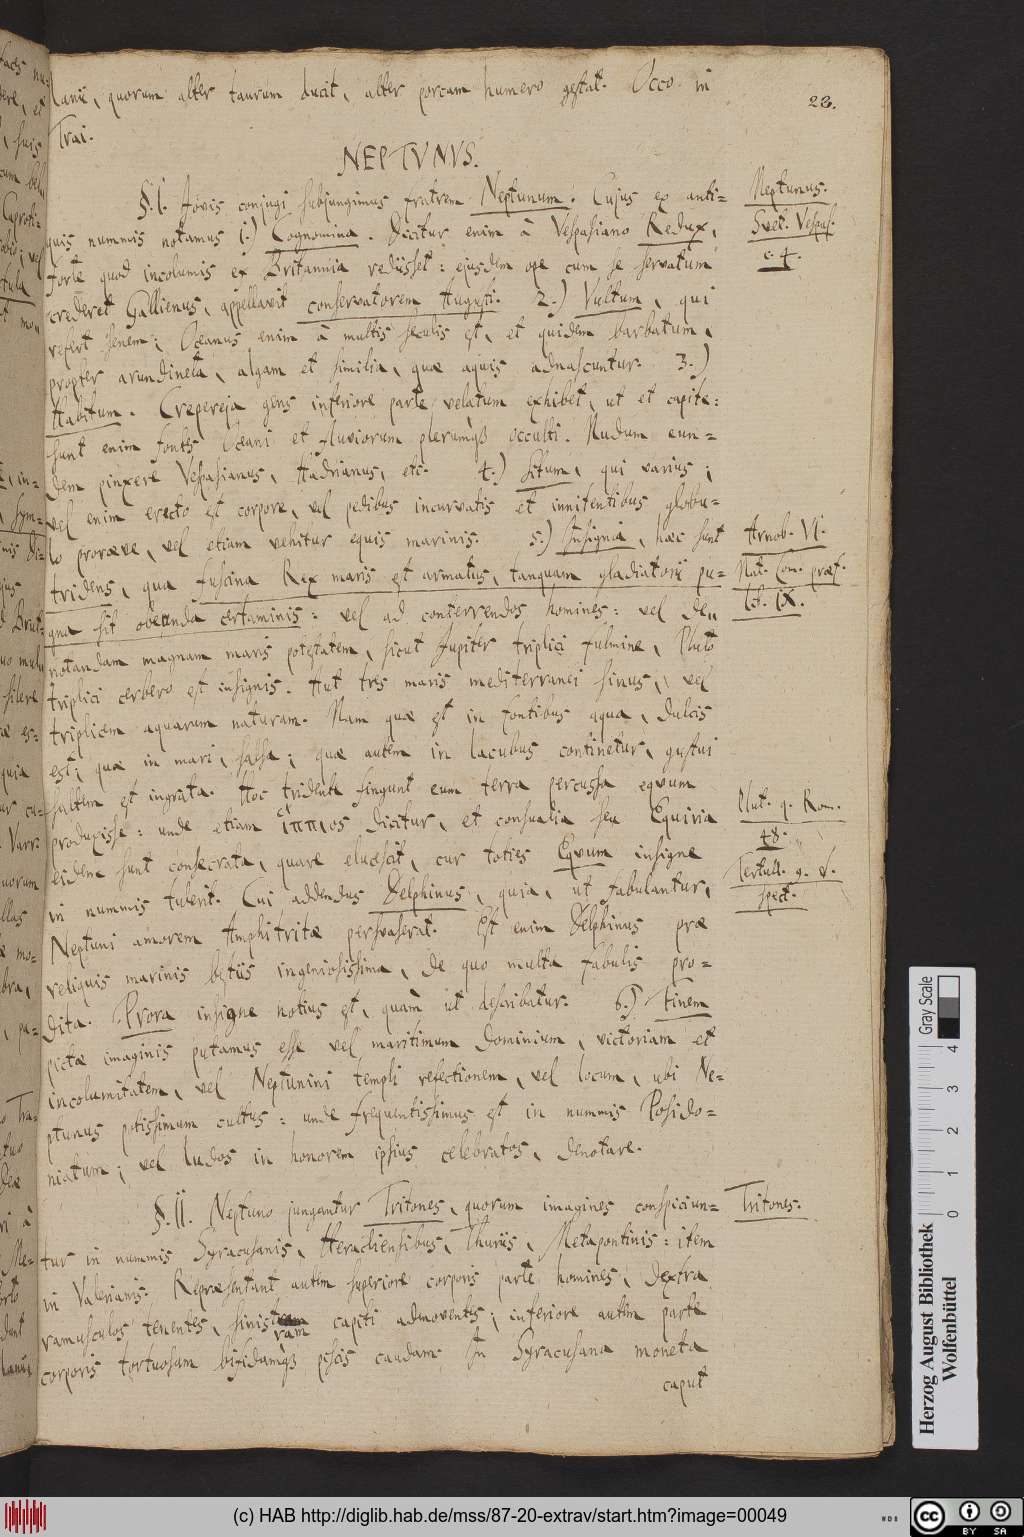 lanii, quorum alter taurum ducit, alter porcum humero gestat. Occo. in
23.
Trai.
NEPTVNVS.
§. I. Jovis conjugi subjungimus fratrem Neptunum. Cujus ex anti=
Neptunus.
quis nummis notamus 1.) Cognomina. Dicitur enim à Vespasiano Redux,
Svet. Vespas.
c. 4.
forte quod incolumis ex Britannia rediisset: ejusdem ope cum se servatum
crederet Gallienus, appellavit conservatorem Augusti. 2.) Vultum, qui
refert senem; Oceanus enim à multis seculis est, et quidem barbatum,
propter arundineta, algam et similia, quæ aquis adnascuntur. 3.)
Habitum. Crepereja gens inferiore parte velatum exhibet, ut et capite:
sunt enim fontes Oceani et fluviorum plerumq3 occulti. Nudum eun=
dem pinxere Vespasianus, Hadrianus, etc. 4.) Situm, qui varius;
vel enim erecto est corpore, vel pedibus incurvatis et innitentibus globu=
lo proræve, vel etiam vehitur equis marinis. 5.) Insignia, hæc sunt
Arnob. VI.
tridens, qua fuscina Rex maris est armatus, tanquam gladiatorii pu=
Nat. Com. præf.
gna sit obeunda certaminis: vel ad conterrendos homines: vel de=
notandam magnam maris potestatem, sicut Jupiter triplici fulmine, Pluto
triplici cerbero est insignis. Aut tres maris mediterranei sinus, vel
triplicem aquarum naturam. Nam quæ est in fontibus aqua, dulcis
est; quæ in mari, salsa; quæ autem in lacubus continetur, gustui
saltem est ingrata. Hoc tridente fingunt eum terra percussa equum
produxisse: unde etiam ἵππιος dicitur, et consualia seu Equiria
Plut. q. Rom.
48.
eidem sunt consecrata, quare elucescit, cur toties Equum insigne
Tertull.
spect.
in nummis tulerit. Cui addendus Delphinus, quia, ut fabulantur,
Neptuni amorem Amphitritæ persvaserat. Est enim Delphinus præ
reliquis marinis bestiis ingeniosissima, de quo multa fabulis pro=
dita. Prora insigne notius est, quàm ut describatur. 6.) Finem
pictæ imaginis putamus esse vel maritimum dominium, victoriam et
incolumitatem, vel Neptunini templi refectionem, vel locum, ubi Ne=
ptunus potissimum cultus: unde frequentissimus est in nummis Posido=
niatum; vel ludos in honorem ipsius celebratos, denotare.
§. II. Neptuno jungantur Tritones, quorum imagines conspiciun=
Tritones.
tur in nummis Syracusanis, Heracliensibus, Thuriis, Metapontinis: item
in Valerianis. Repræsentant autem superiore corporis parte homines, dextra
ramusculos tenentes, sinistram capiti admoventes; inferiore autem parte
corporis tortuosam bifidamq3 piscis caudam. In Syracusana moneta
caput
Gray Scale
0 1 2 3 4
Herzog August Bibliothek
Wolfenbüttel
(c) HAB http://diglib.hab.de/mss/87-20-extrav/start.htm?image=00049
cc BY SA